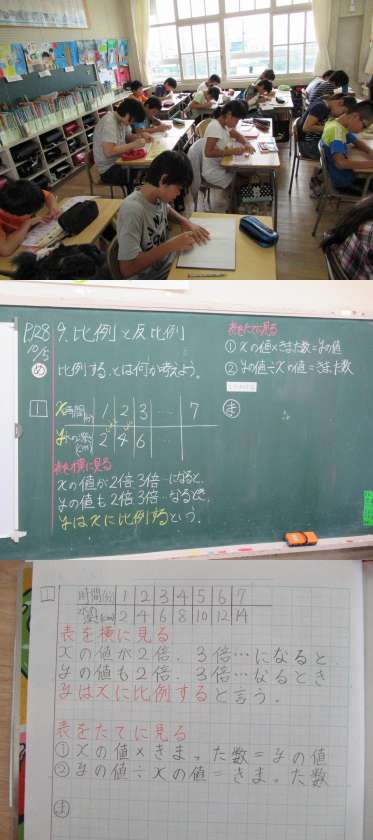 P.128 9. 比例と反比例
10/5
め 比例する。とは何か考えよう。
1 x 時間(分) 1 2 3 … 7
y 水の深さ(cm) 2 4 6 …
表を横に見る
xの値が2倍、3倍…になると、
yの値も2倍、3倍…なるとき、
yはxに比例するという。
表をたてに見る
① xの値×きまった数=yの値
② yの値÷xの値=きまった数
ま
1 時間(分) 1 2 3 4 5 6 7
水の深さ(cm) 2 4 6 8 10 12 14
表を横に見る
xの値が2倍、3倍…になると
yの値も2倍、3倍…なるとき
yはxに比例すると言う。
表をたてに見る
① xの値×きまった数=yの値
② yの値÷xの値=きまった数
ま